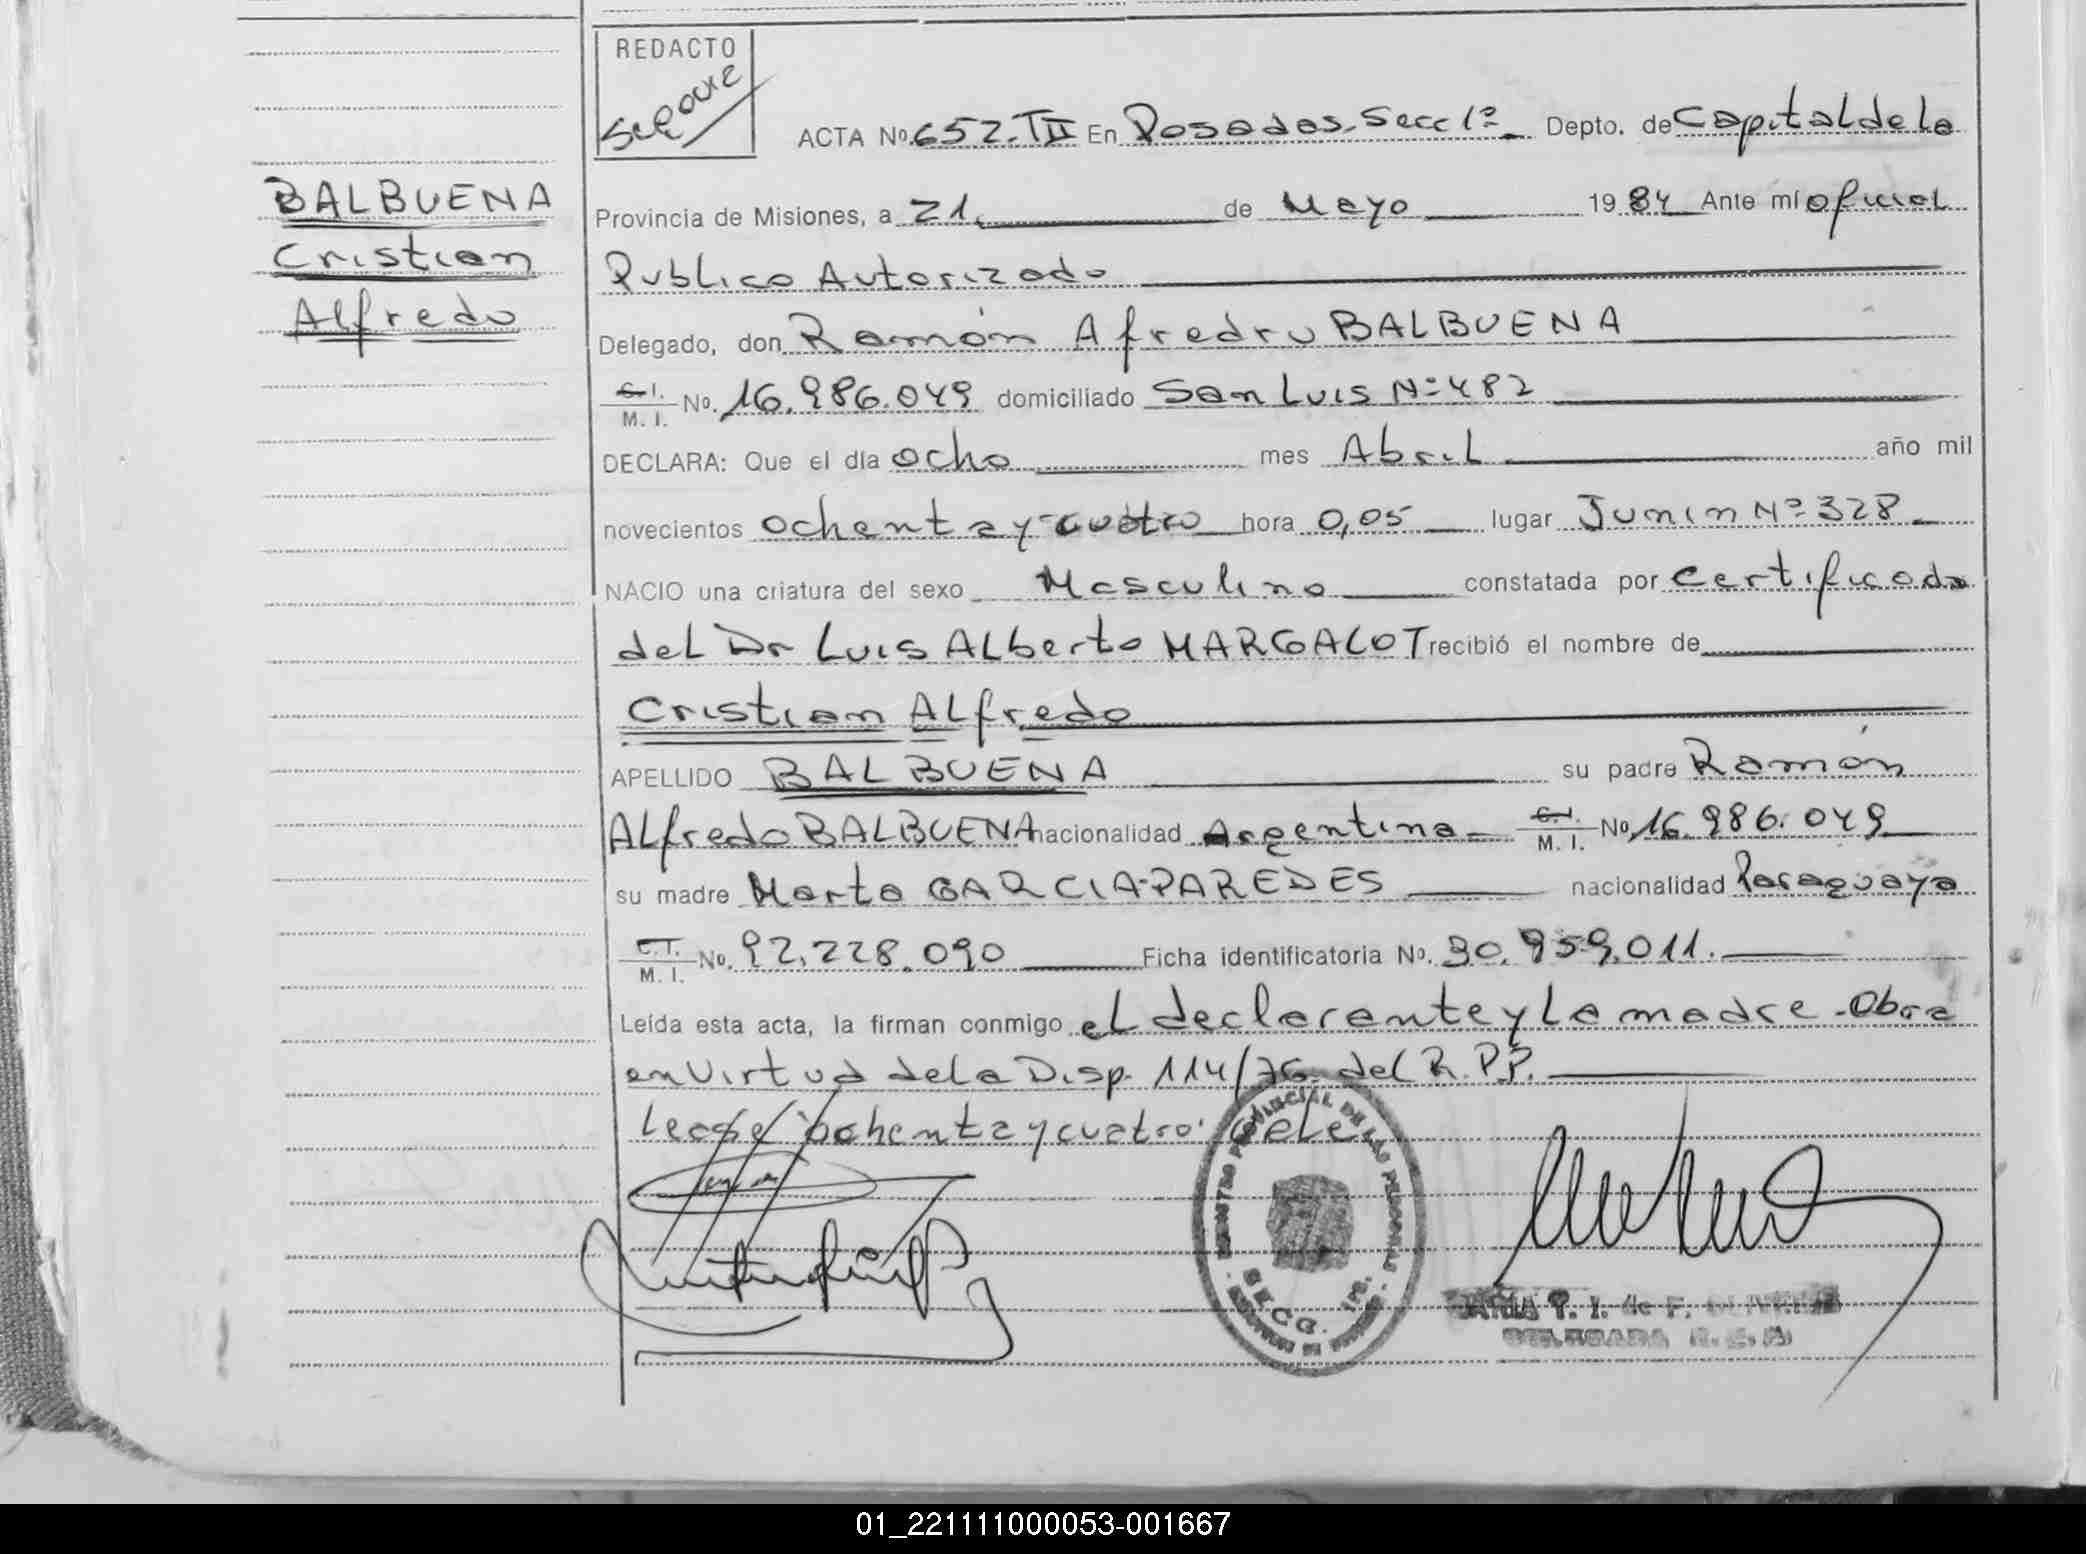 REDACTO
ACTA No. 652. TII En Posadas. Secc 1ª Depto. de Capital de la
BALBUENA
Cristian
Alfredo
Provincia de Misiones, a 21. de Mayo 1984 Ante mí oficial
Publico Autorizado
Delegado, don Ramón Afredru BALBUENA
C.I. M. I. No. 16.986.049 domiciliado San Luis Nº 482
DECLARA: Que el día ocho mes Abril año mil
novecientos ochenta y cuatro hora 0,05 lugar Junin Nº 328
NACIO una criatura del sexo Masculino constatada por certificado
del Dr Luis Alberto MARGALOT recibió el nombre de
Cristian Alfredo
APELLIDO BALBUENA su padre Ramón
Alfredo BALBUENA nacionalidad Argentina C.I. M. I. No 16.986.049
su madre Marta GARCIA-PAREDES nacionalidad Paraguaya
C.I. M. I. No. 92.228.090 Ficha identificatoria No. 30.959.011.
Leída esta acta, la firman conmigo el declarante y la madre. Obra
en virtud de la Disp. 114/76 del R.P.P.
Lease ochenta y cuatro. Vale
REGISTRO PROVINCIAL DE LAS PERSONAS
P. I. de F.
DELEGADA
01_221111000053-001667